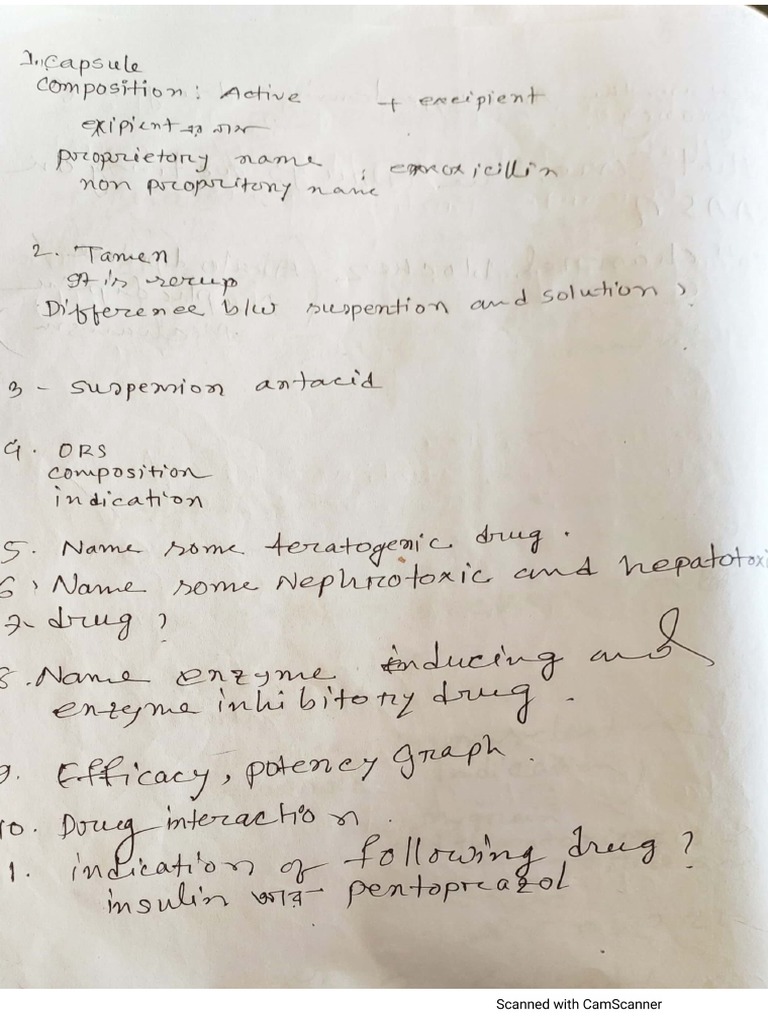 1. Capsule
Composition: Active + excipient
exipient এর নাম
proprietory name
non propritory name : emoxicillin
2. Tamen
It is serup
Difference b/w suspention and solution?
3 - suspension antacid
4. ORS
composition
indication
5. Name some teratogenic drug.
6, Name some Nephrotoxic and hepatotoxi
7- drug?
8. Name enzyme inducing and
enzyme inhibitory drug.
9. Efficacy, potency graph.
10. Drug interaction.
1. indication of following drug?
insulin আর pentoprazol
Scanned with CamScanner